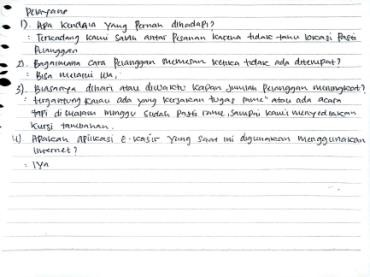 Pelayan
1). Apa kendala yang Pernah dihadapi?
: Terkadang kami salah antar Pesanan karena tidak tahu lokasi Pasti
Pelanggan
2). Bagaimana cara Pelanggan memesan ketika tidak ada ditempat?
: Bisa melalui WA,
3). Biasanya dihari atau diwaktu kapan Jumlah Pelanggan meningkat?
: Tergantung kalau ada yang kerjakan tugas rame" atau ada acara
tapi dimalam minggu sudah Pasti rame, sampai kami menyediakan
kursi tambahan.
4). Apakah aplikasi e-kasir yang saat ini digunakan menggunakan
internet?
: IYA